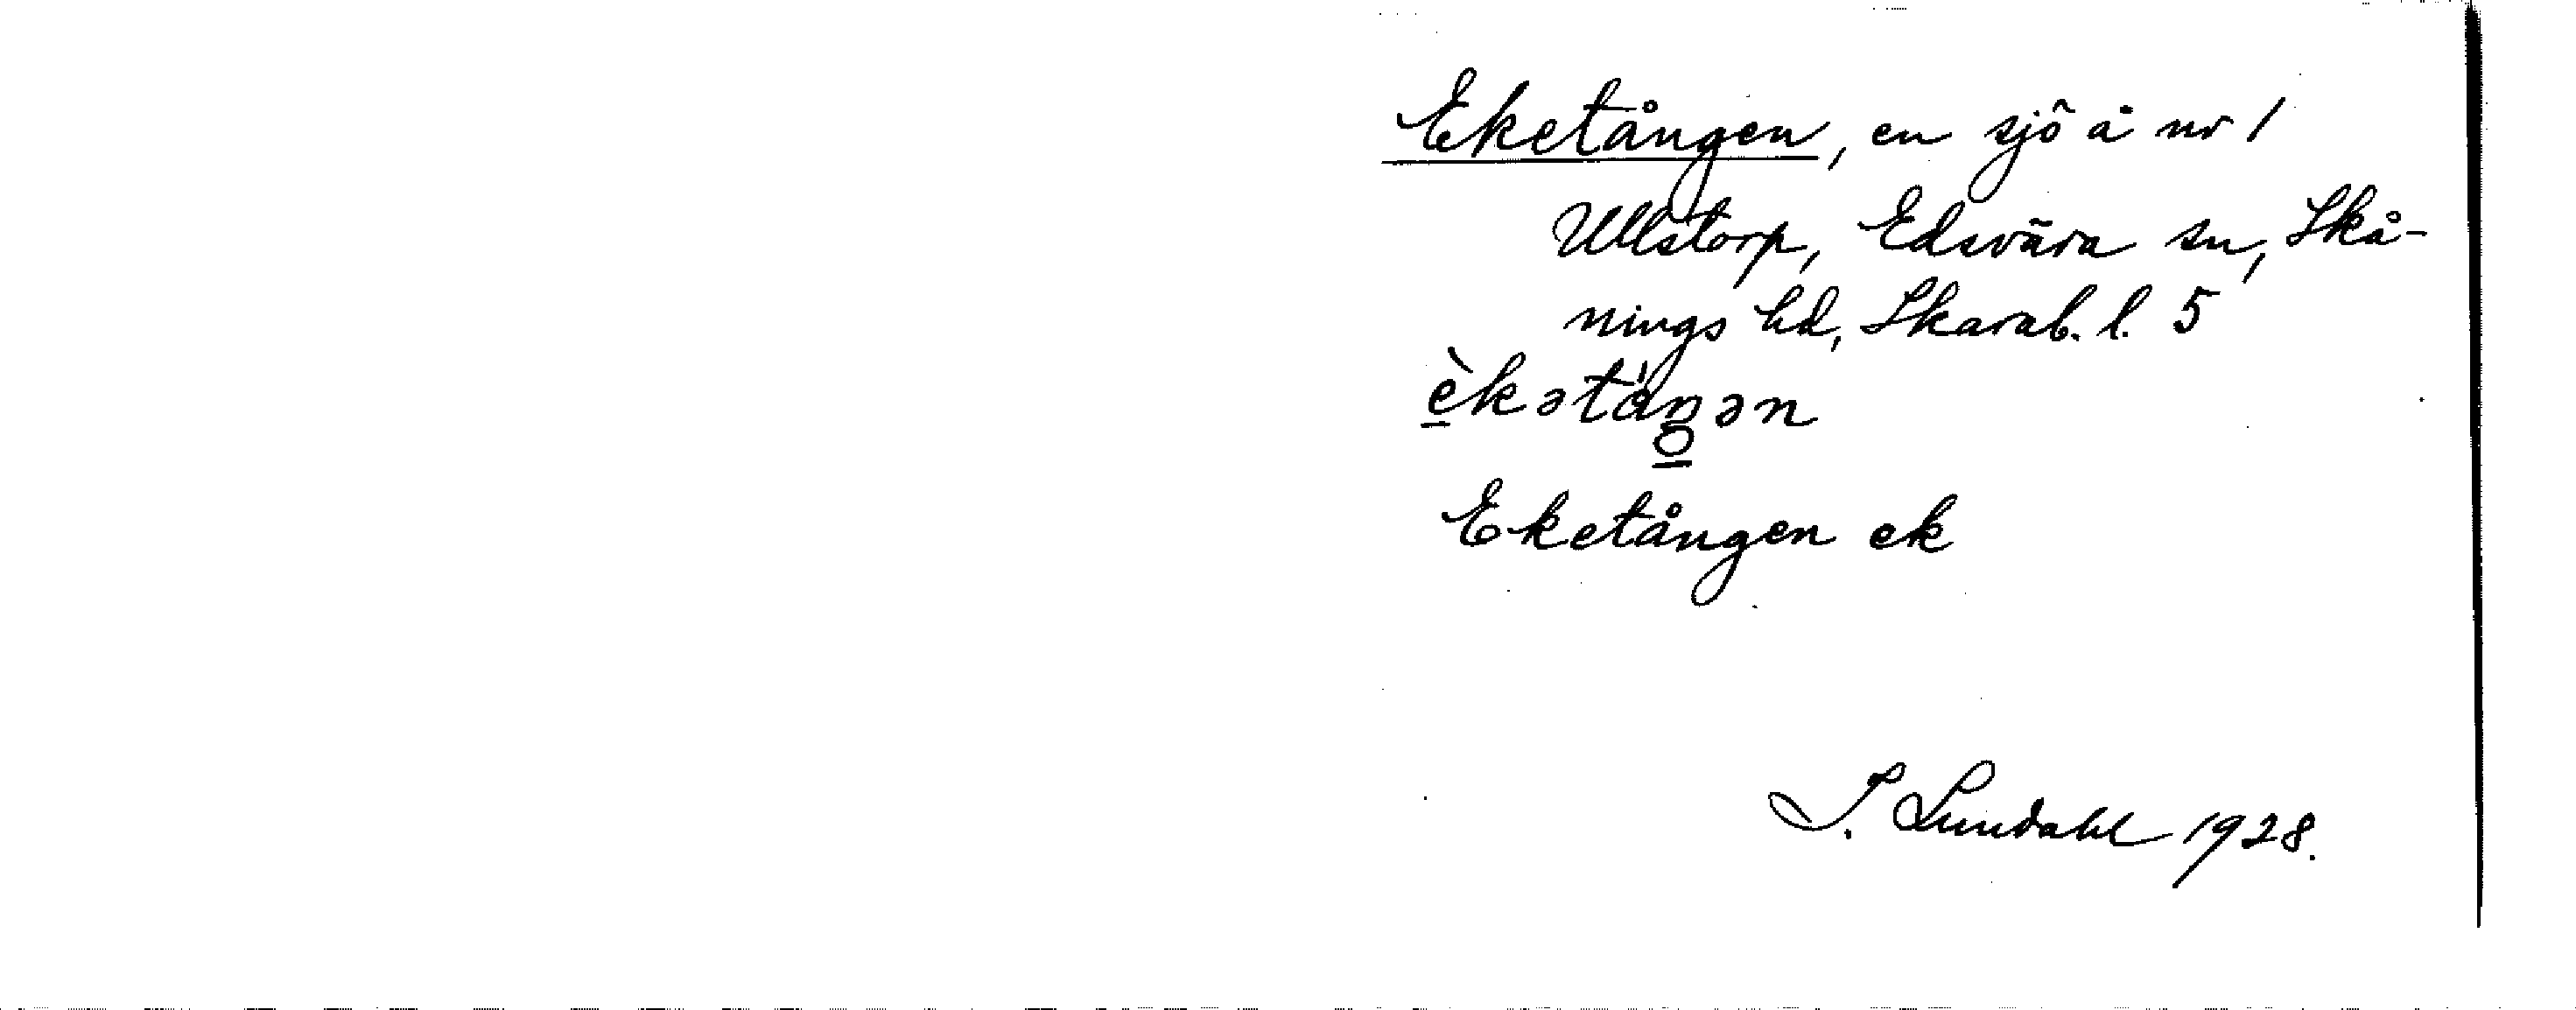 Eketången, en sjö å nr 1
Ullstorp, Edsvära sn, Skå-
nings hd, Skarab. l. 5
èkətåŋən
Eketången ek
I. Lundahl 1928.